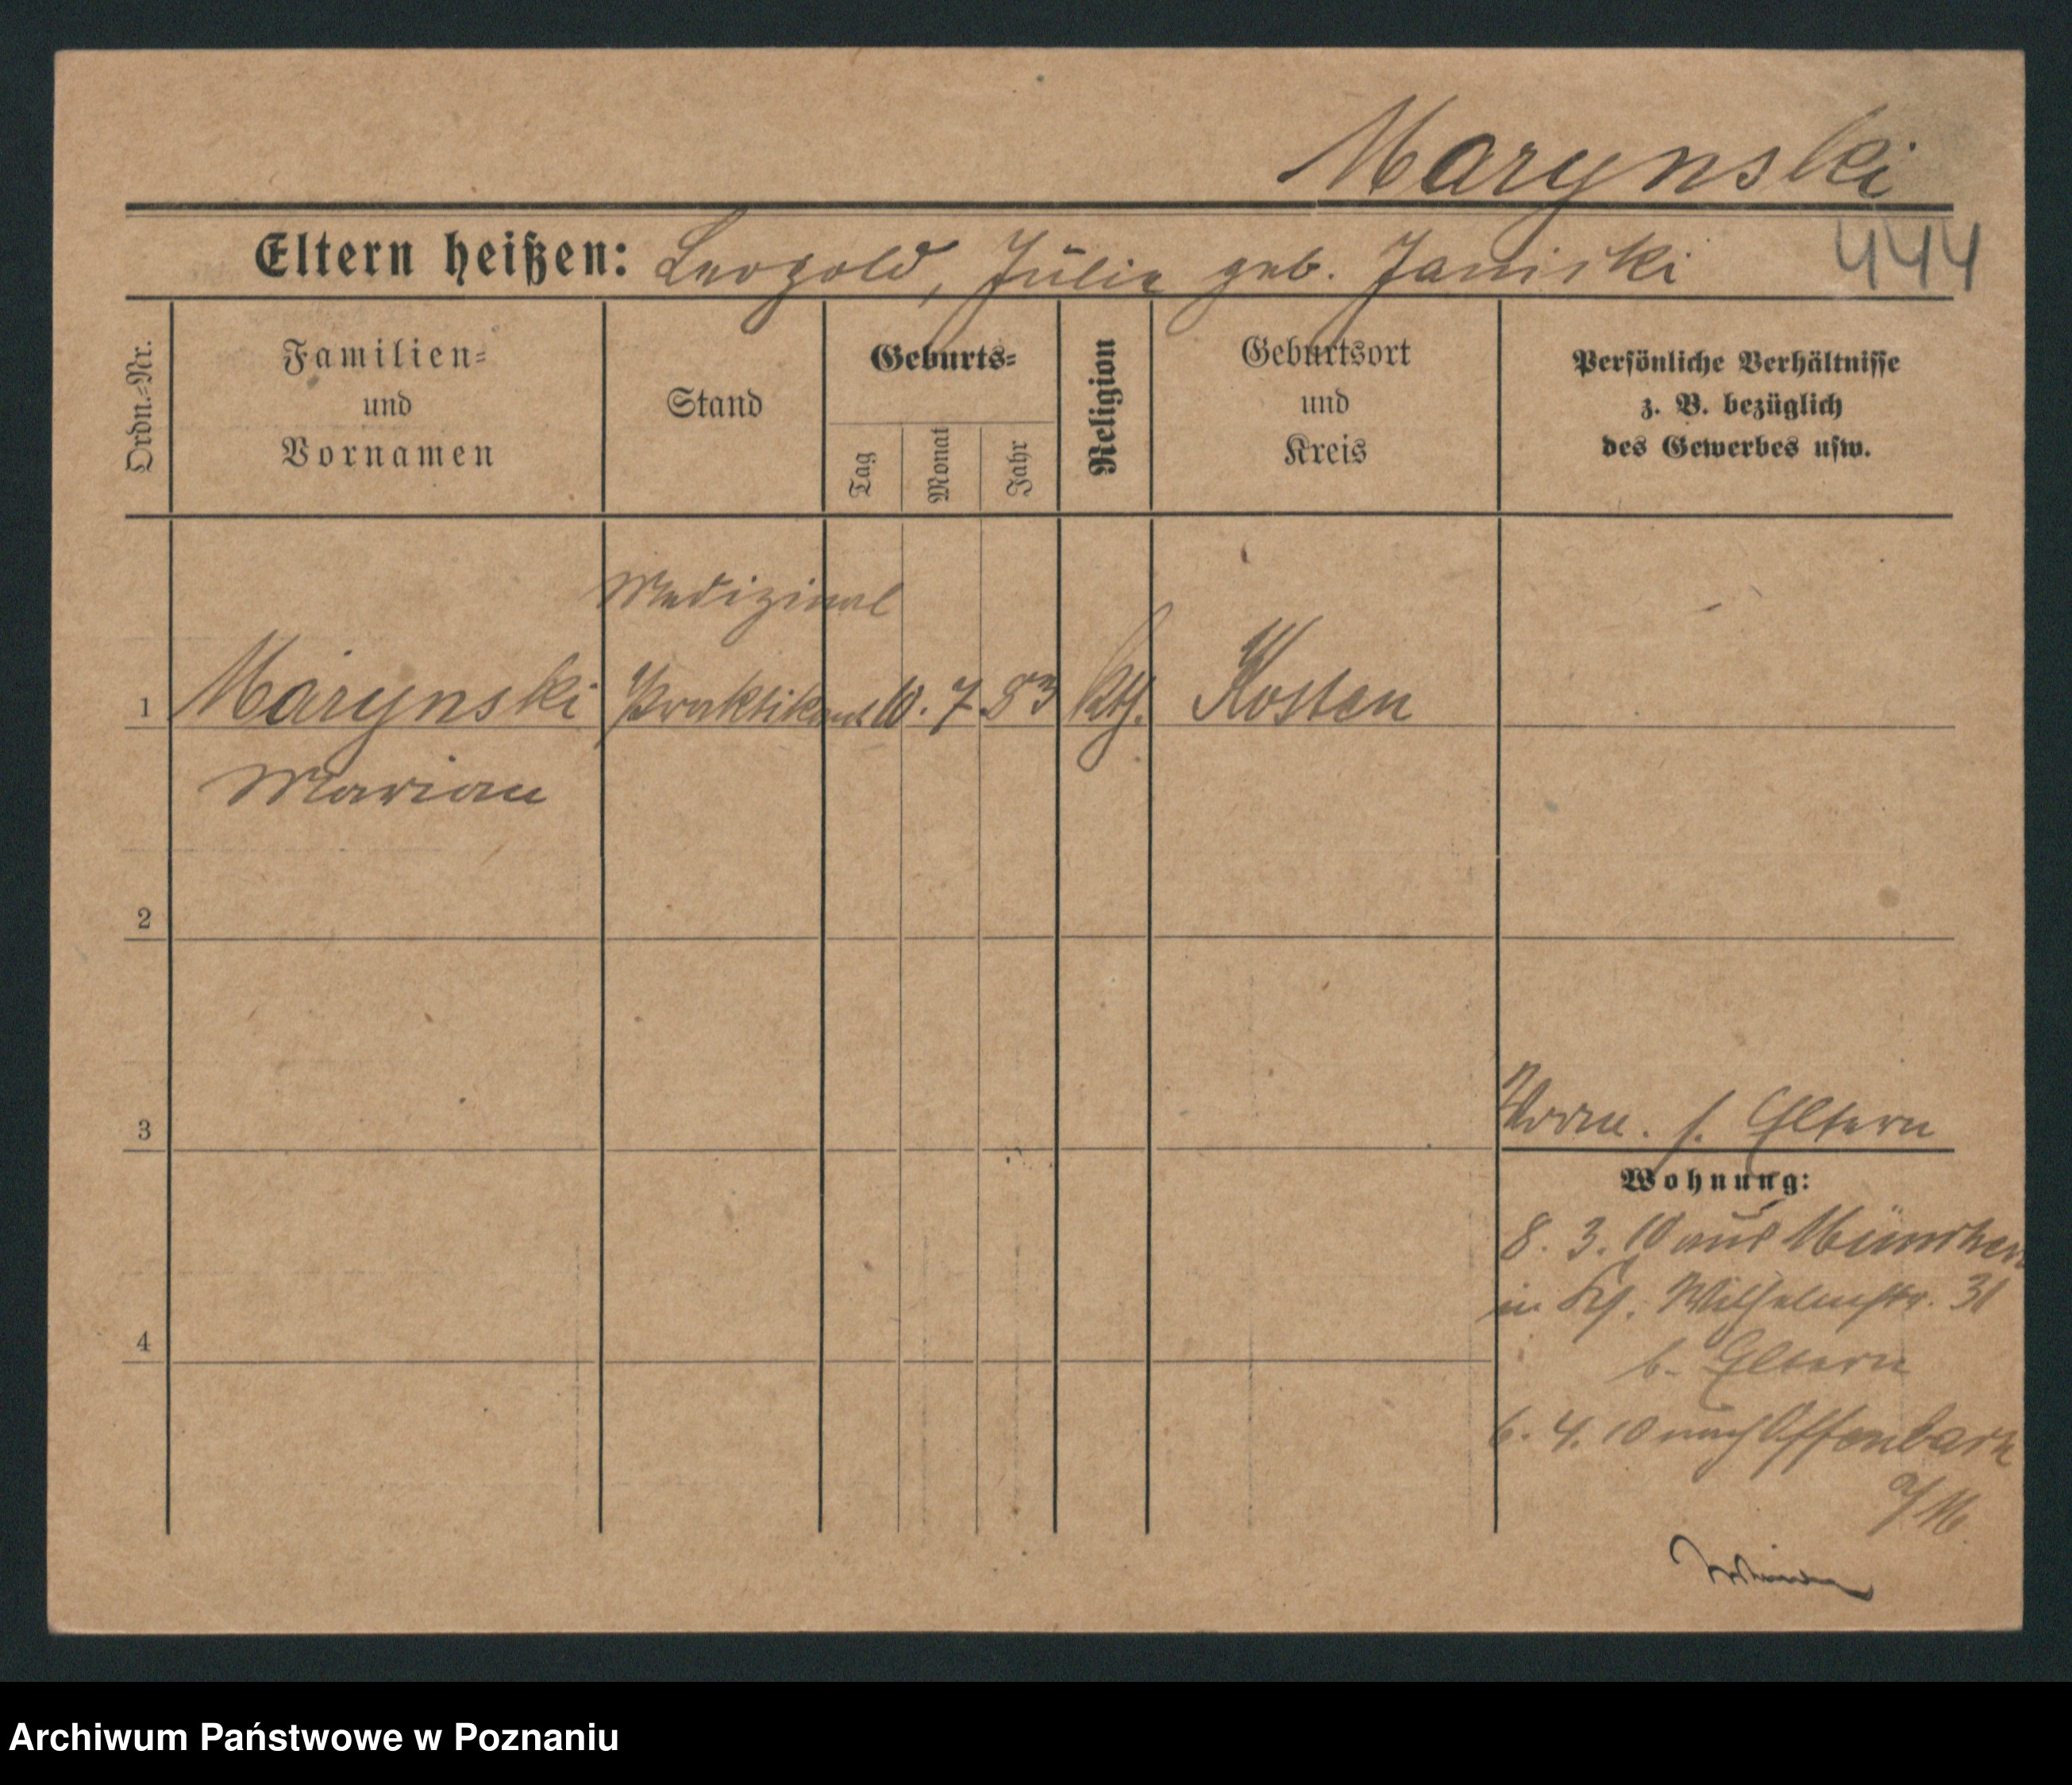 Marynski
Eltern heißen: Leopold, Julie geb. Janiski
444
Ordn.-Nr.
Familien-
und
Vornamen
Stand
Geburts-
Tag
Monat
Jahr
Religion
Geburtsort
und
Kreis
Persönliche Verhältnisse
z. B. bezüglich
des Gewerbes usw.
Medizinal
1 Marynski Praktikant 10. 7. 83 kth. Kosten
Marian
2
3
Vorm. s. Eltern
Wohnung:
8. 3. 10 aus München
in Wilhelmstr. 31
4
b. Eltern
6. 4. 10 nach Offenbach
a/M.
Archiwum Państwowe w Poznaniu